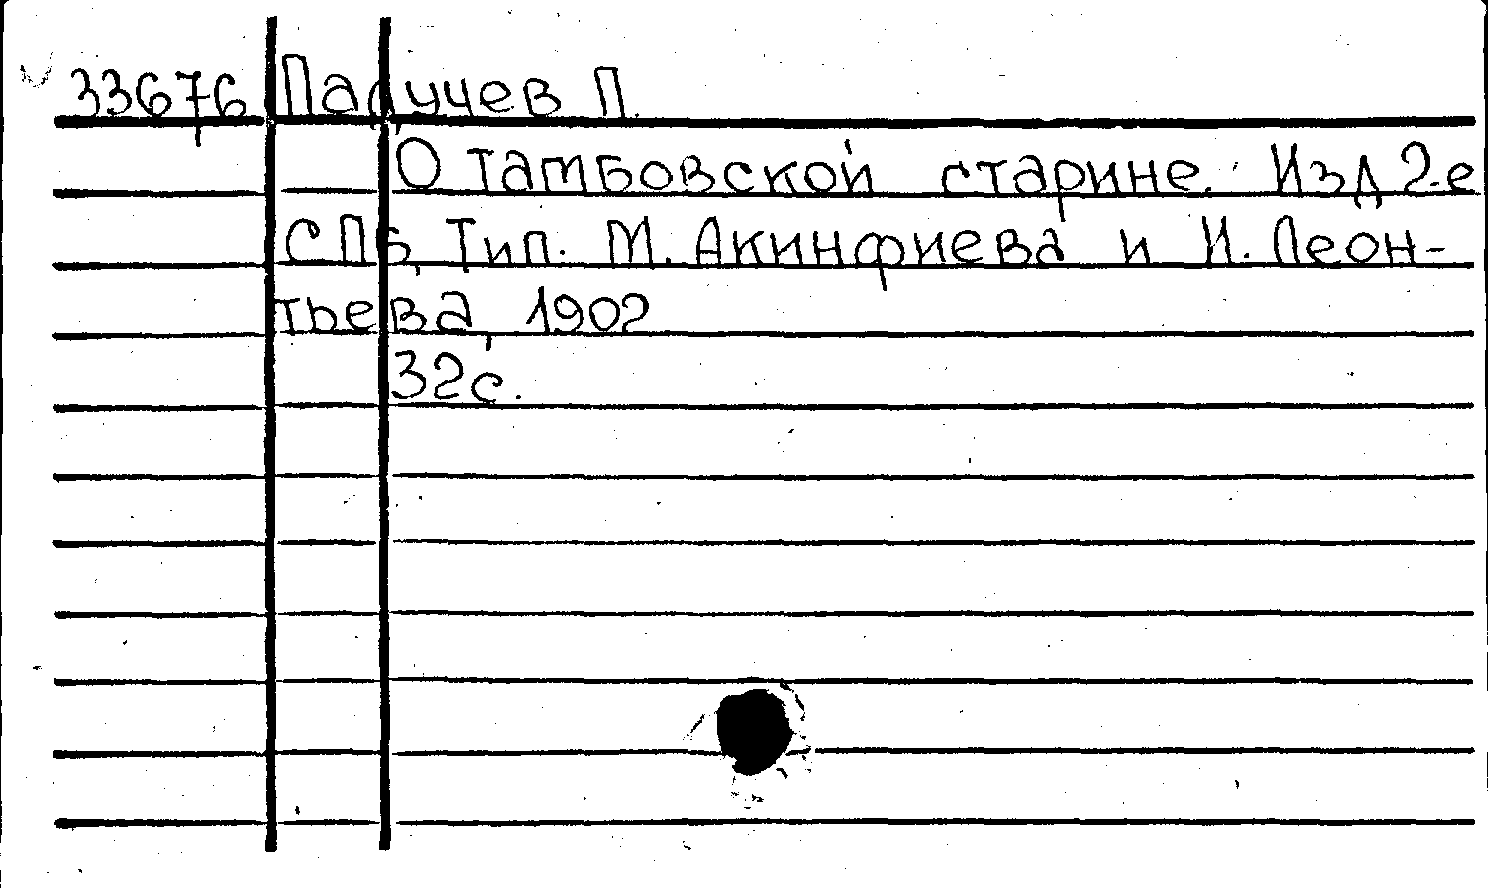 33676 Падучев П.
О тамбовской старине. Изд 2-е
СПб, Тип. М. Акинфиева и И. Леон-
тьева, 1902
32с.